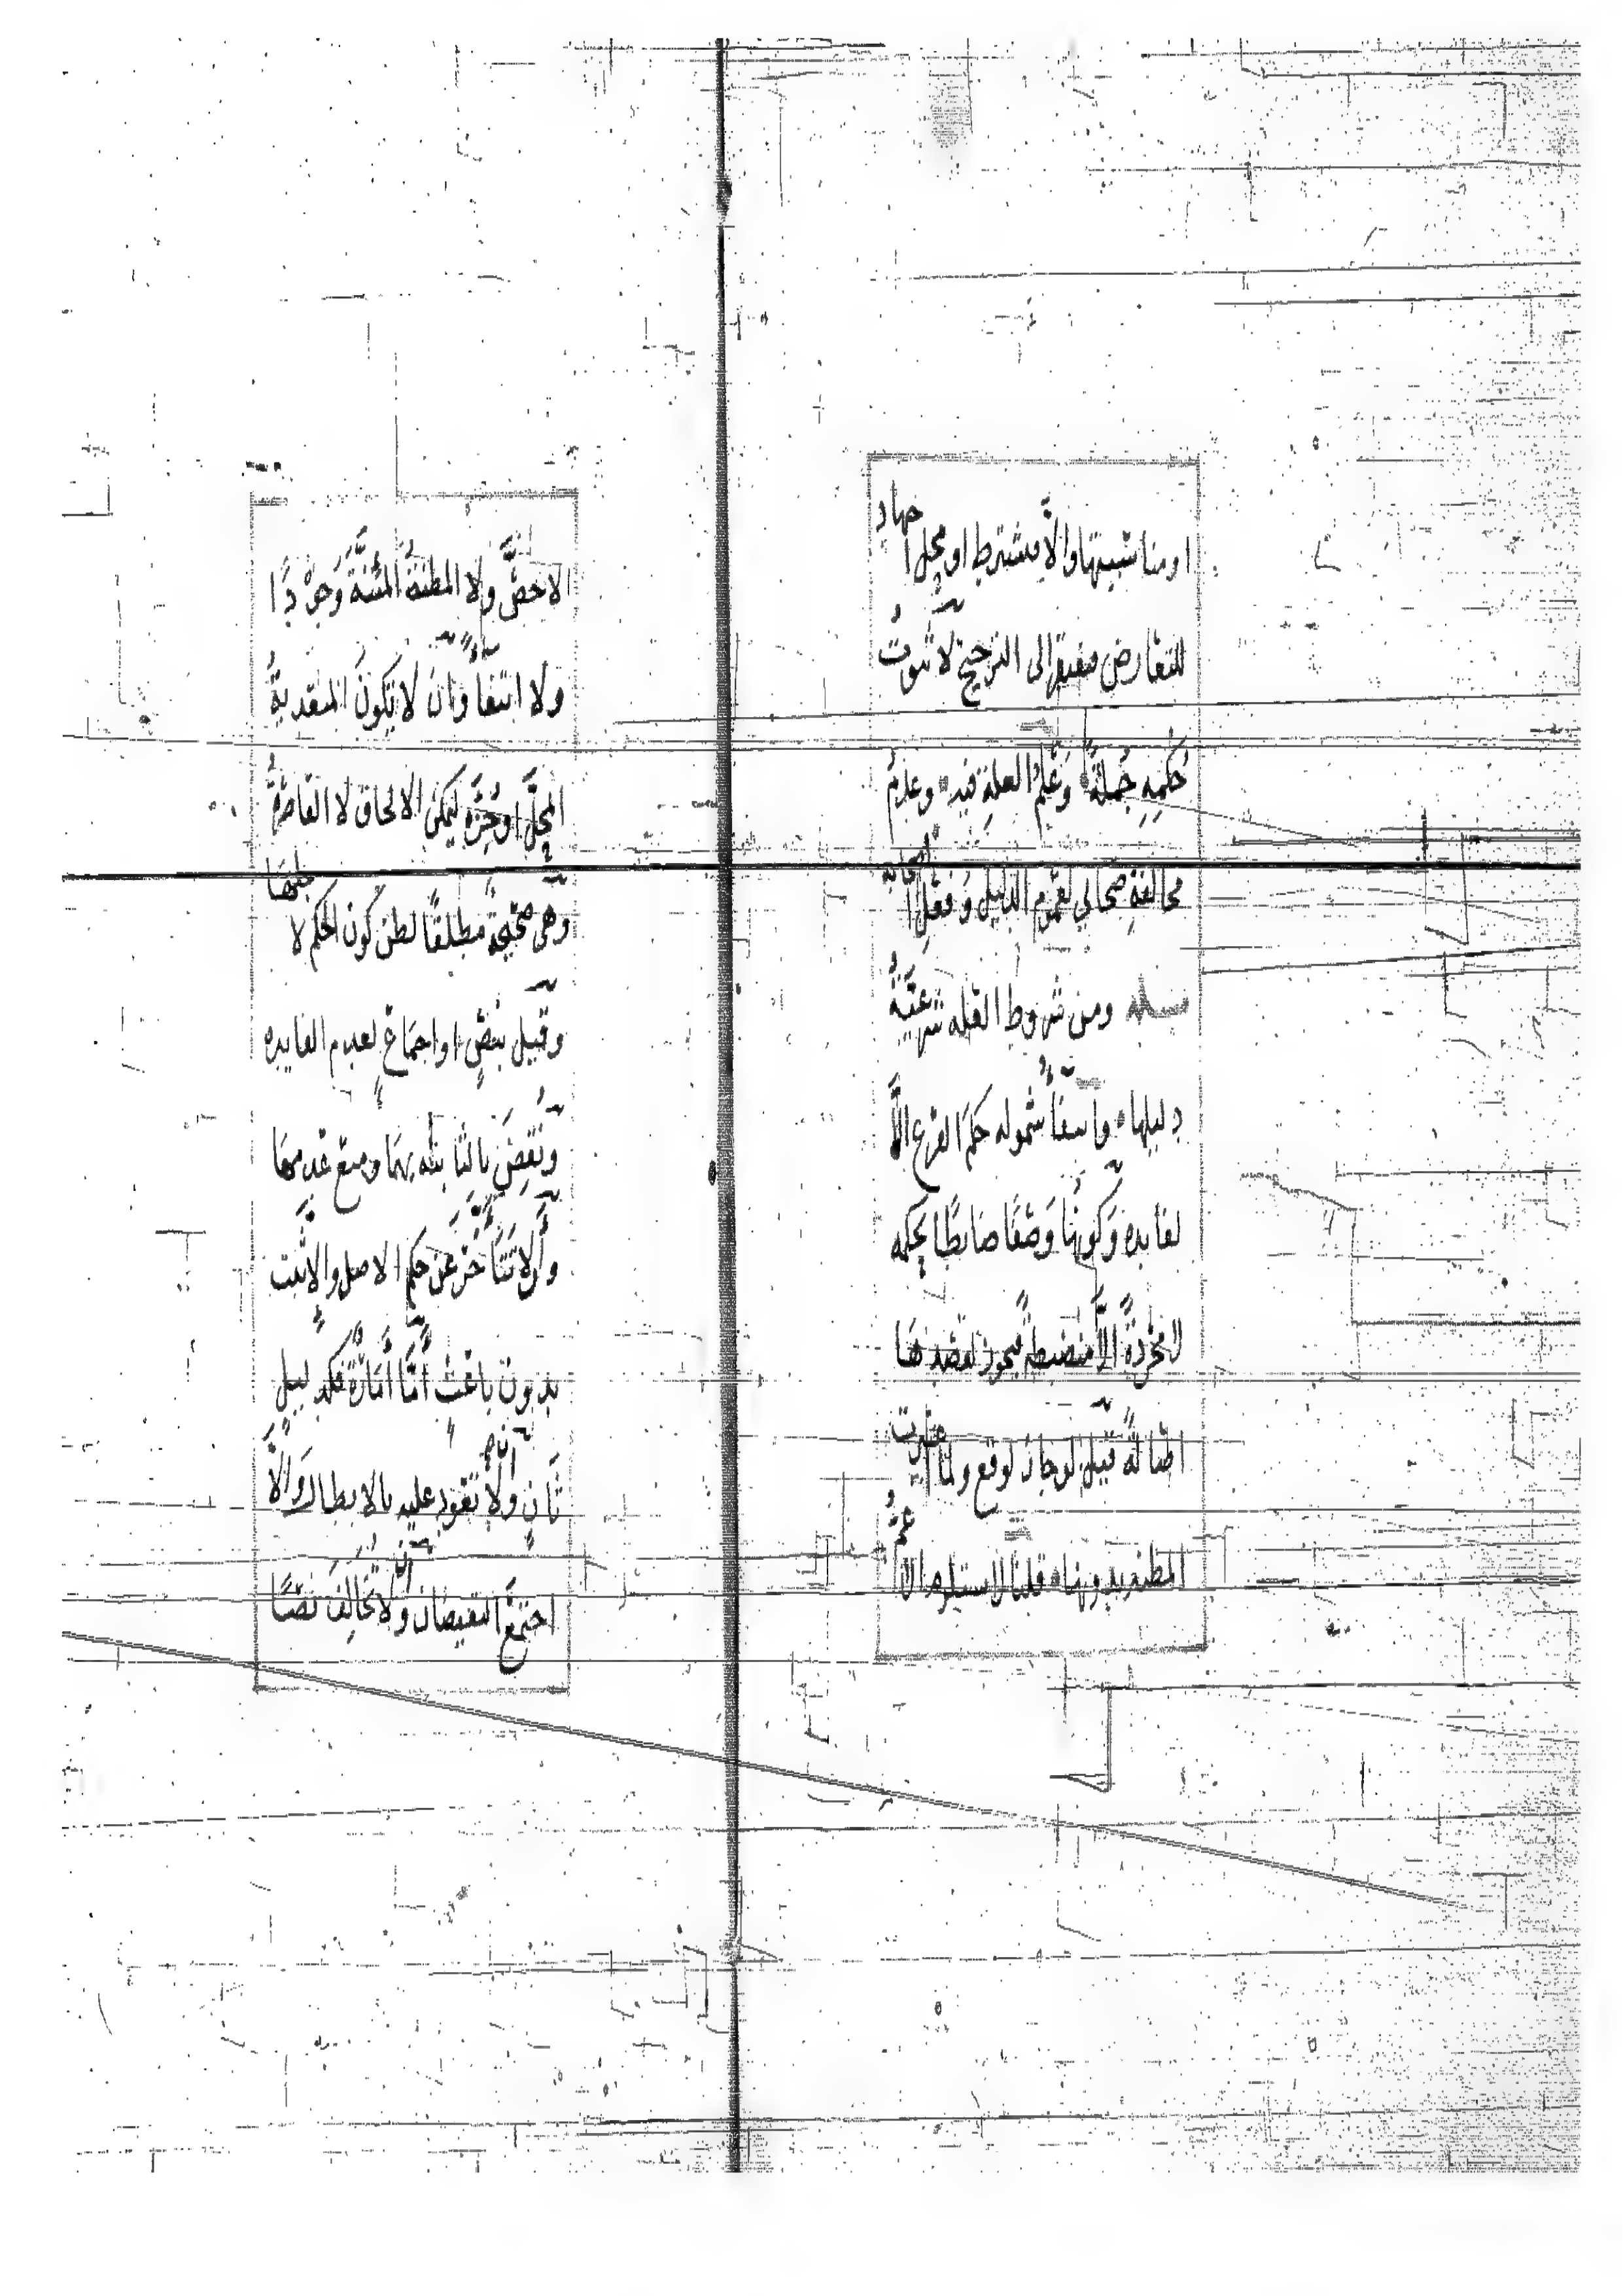 او مناسبتها والا فمشترط او محل اجتهاد
للتعارض مفيدة الى الترجيح لا ثبوت
حُكمِهِ جُملةً وَعَلَمُ العلةِ فيه وعدمُ
مخالفةِ صحابي لعمومِ الدليل وَفعلِ اصحابه
مسئله ومن شروط العله شرعيَّةُ
دليلها واسفا شموله حكمَ الفرع الَّا
لفايده وَكونُها وَصفًا ضابطًا لحكمه
لا مجرَّدةً الَّا منضبطةً فيجوز لقصدها
اصالةً قيل لو جاز لوقع ولما اعتبرت
المظنه بدونها قلنا لاستلزام الاعمُّ
الاخصَّ ولا المظنةُ المئنَّةَ وَجوْدًا
ولا انتفا وان لا تكونَ المتعديةُ
المحلَّ او جُزءَهُ ليمكن الالحاق لا القاصرةُ
وهى صحيحةٌ مطلقًا لظن كون الحكم لاجلها
وقيل بنصٍّ او اجماعٍ لعدم الفايده
ونُقِضَ بالثابته بهما ومنع عدمها
وَأَن لا تَتَأَخَّرَ عَن حكم الاصل والا ثبت
بدون باعث أمَّا أَمَارَةً فكدليل
ثَانٍ ولا تعود عليه بالابطال وَالَّا
اجتمعَ النقيضان وَأن لا تُخَالِفَ نصًّا